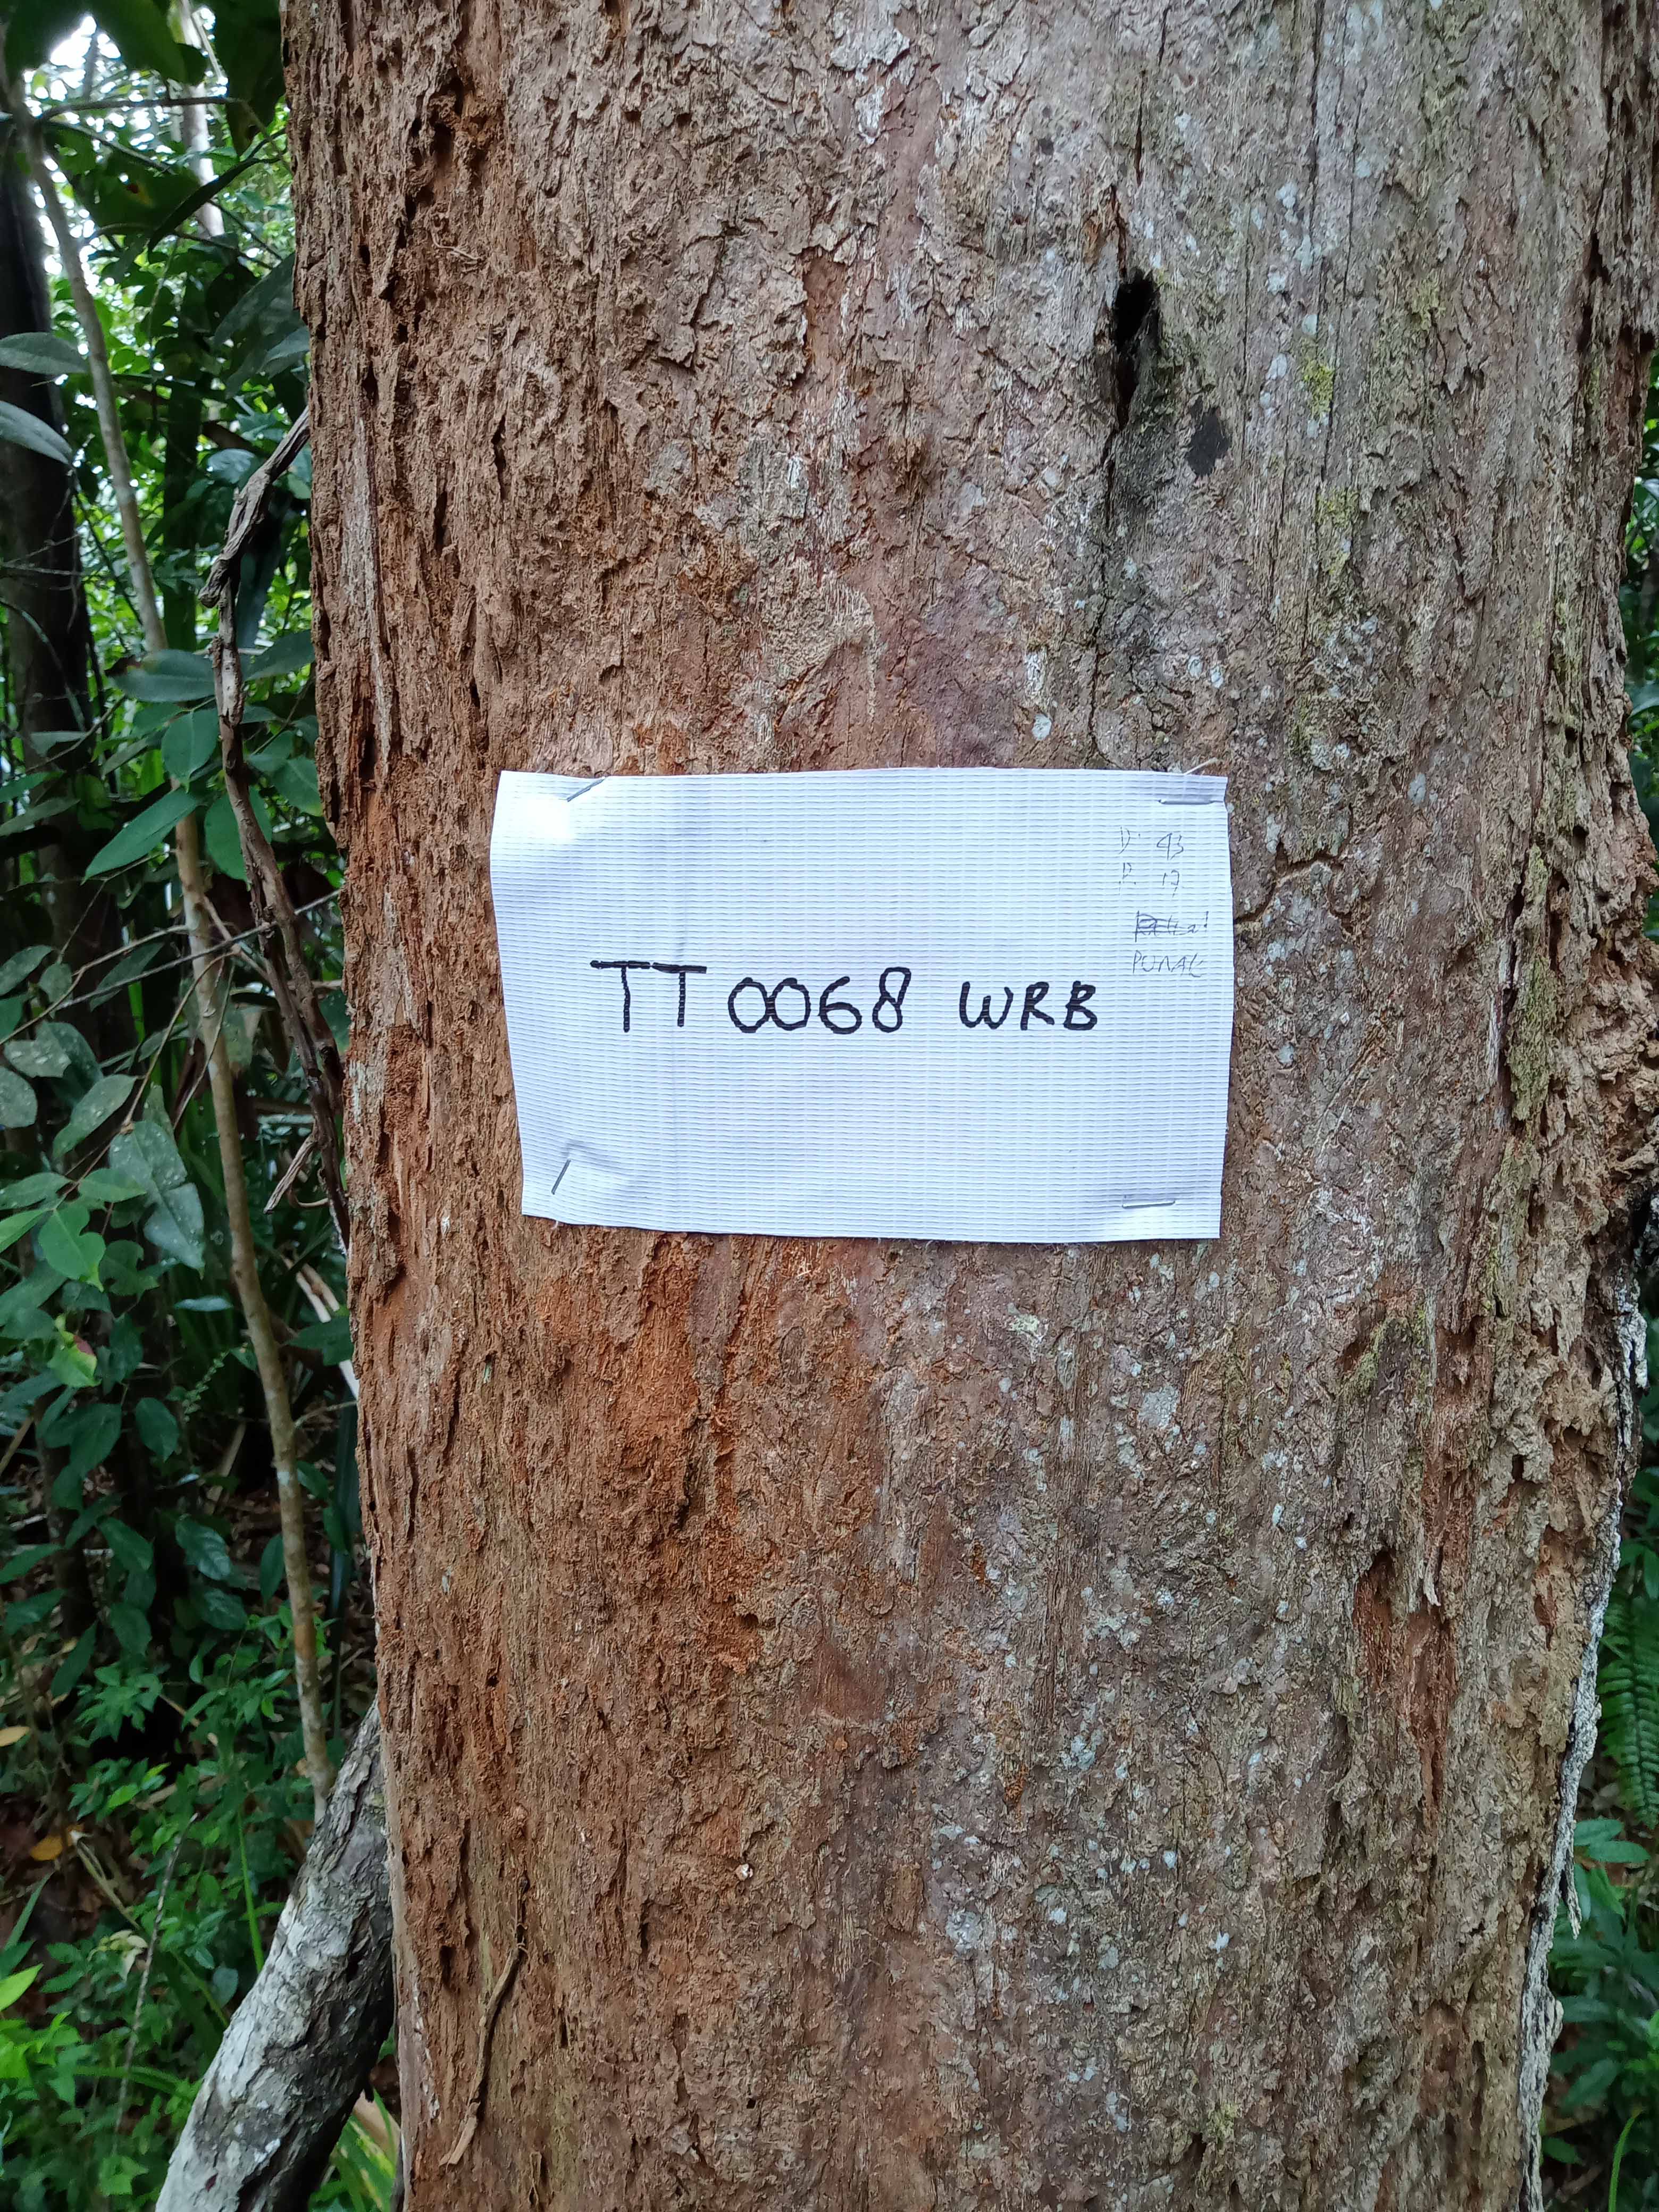 D: 43
P. 17
PUNAK
TT 0068 WRB